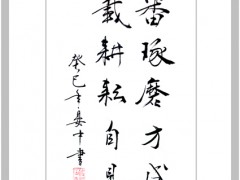 番琢磨方成
載耕耘自見
癸巳年晏中書